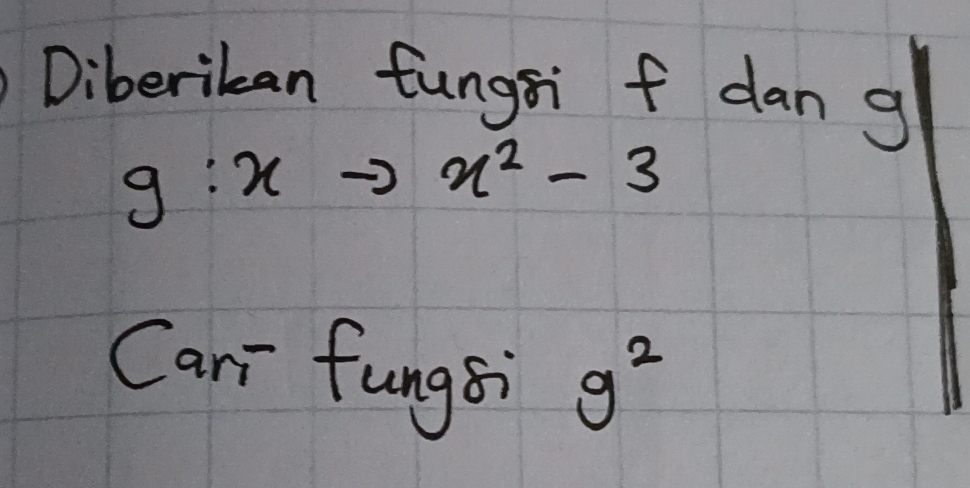 Diberikan fungsi f dan g
g : x → x² - 3
Cari fungsi g²